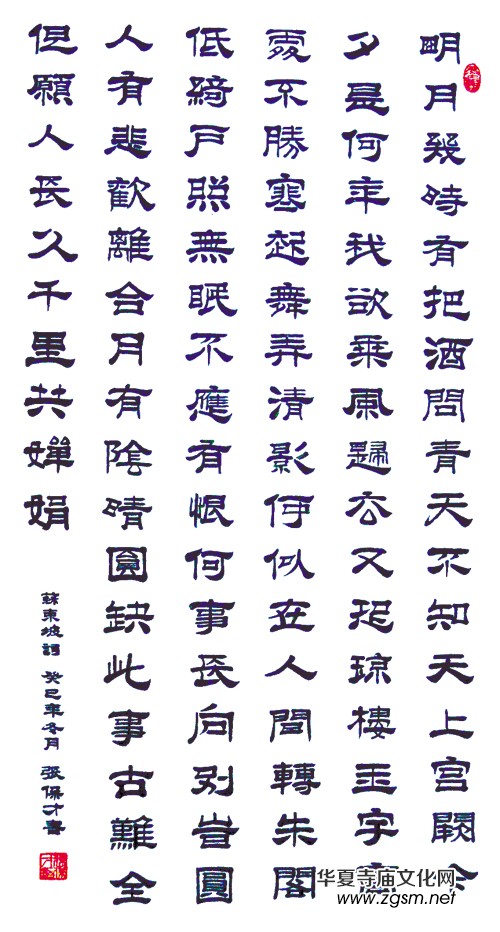 明月幾時有把酒問青天不知天上宮闕今
夕是何年我欲乘風歸去又恐琼樓玉宇高
處不勝寒起舞弄清影何似在人間轉朱閣
低綺戶照無眠不應有恨何事長向別旹圓
人有悲歡離合月有陰晴圓缺此事古難全
但願人長久千里共嬋娟
蘇東坡詞 癸巳年冬月 張保才書
华夏寺庙文化网
www.zgsm.net